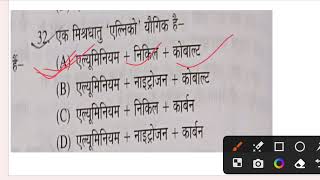 32. एक मिश्रधातु 'एल्निको' यौगिक है–
हैं–
(A) एल्यूमिनियम + निकिल + कोबाल्ट
(B) एल्यूमिनियम + नाइट्रोजन + कोबाल्ट
(C) एल्यूमिनियम + निकिल + कार्बन
(D) एल्यूमिनियम + नाइट्रोजन + कार्बन